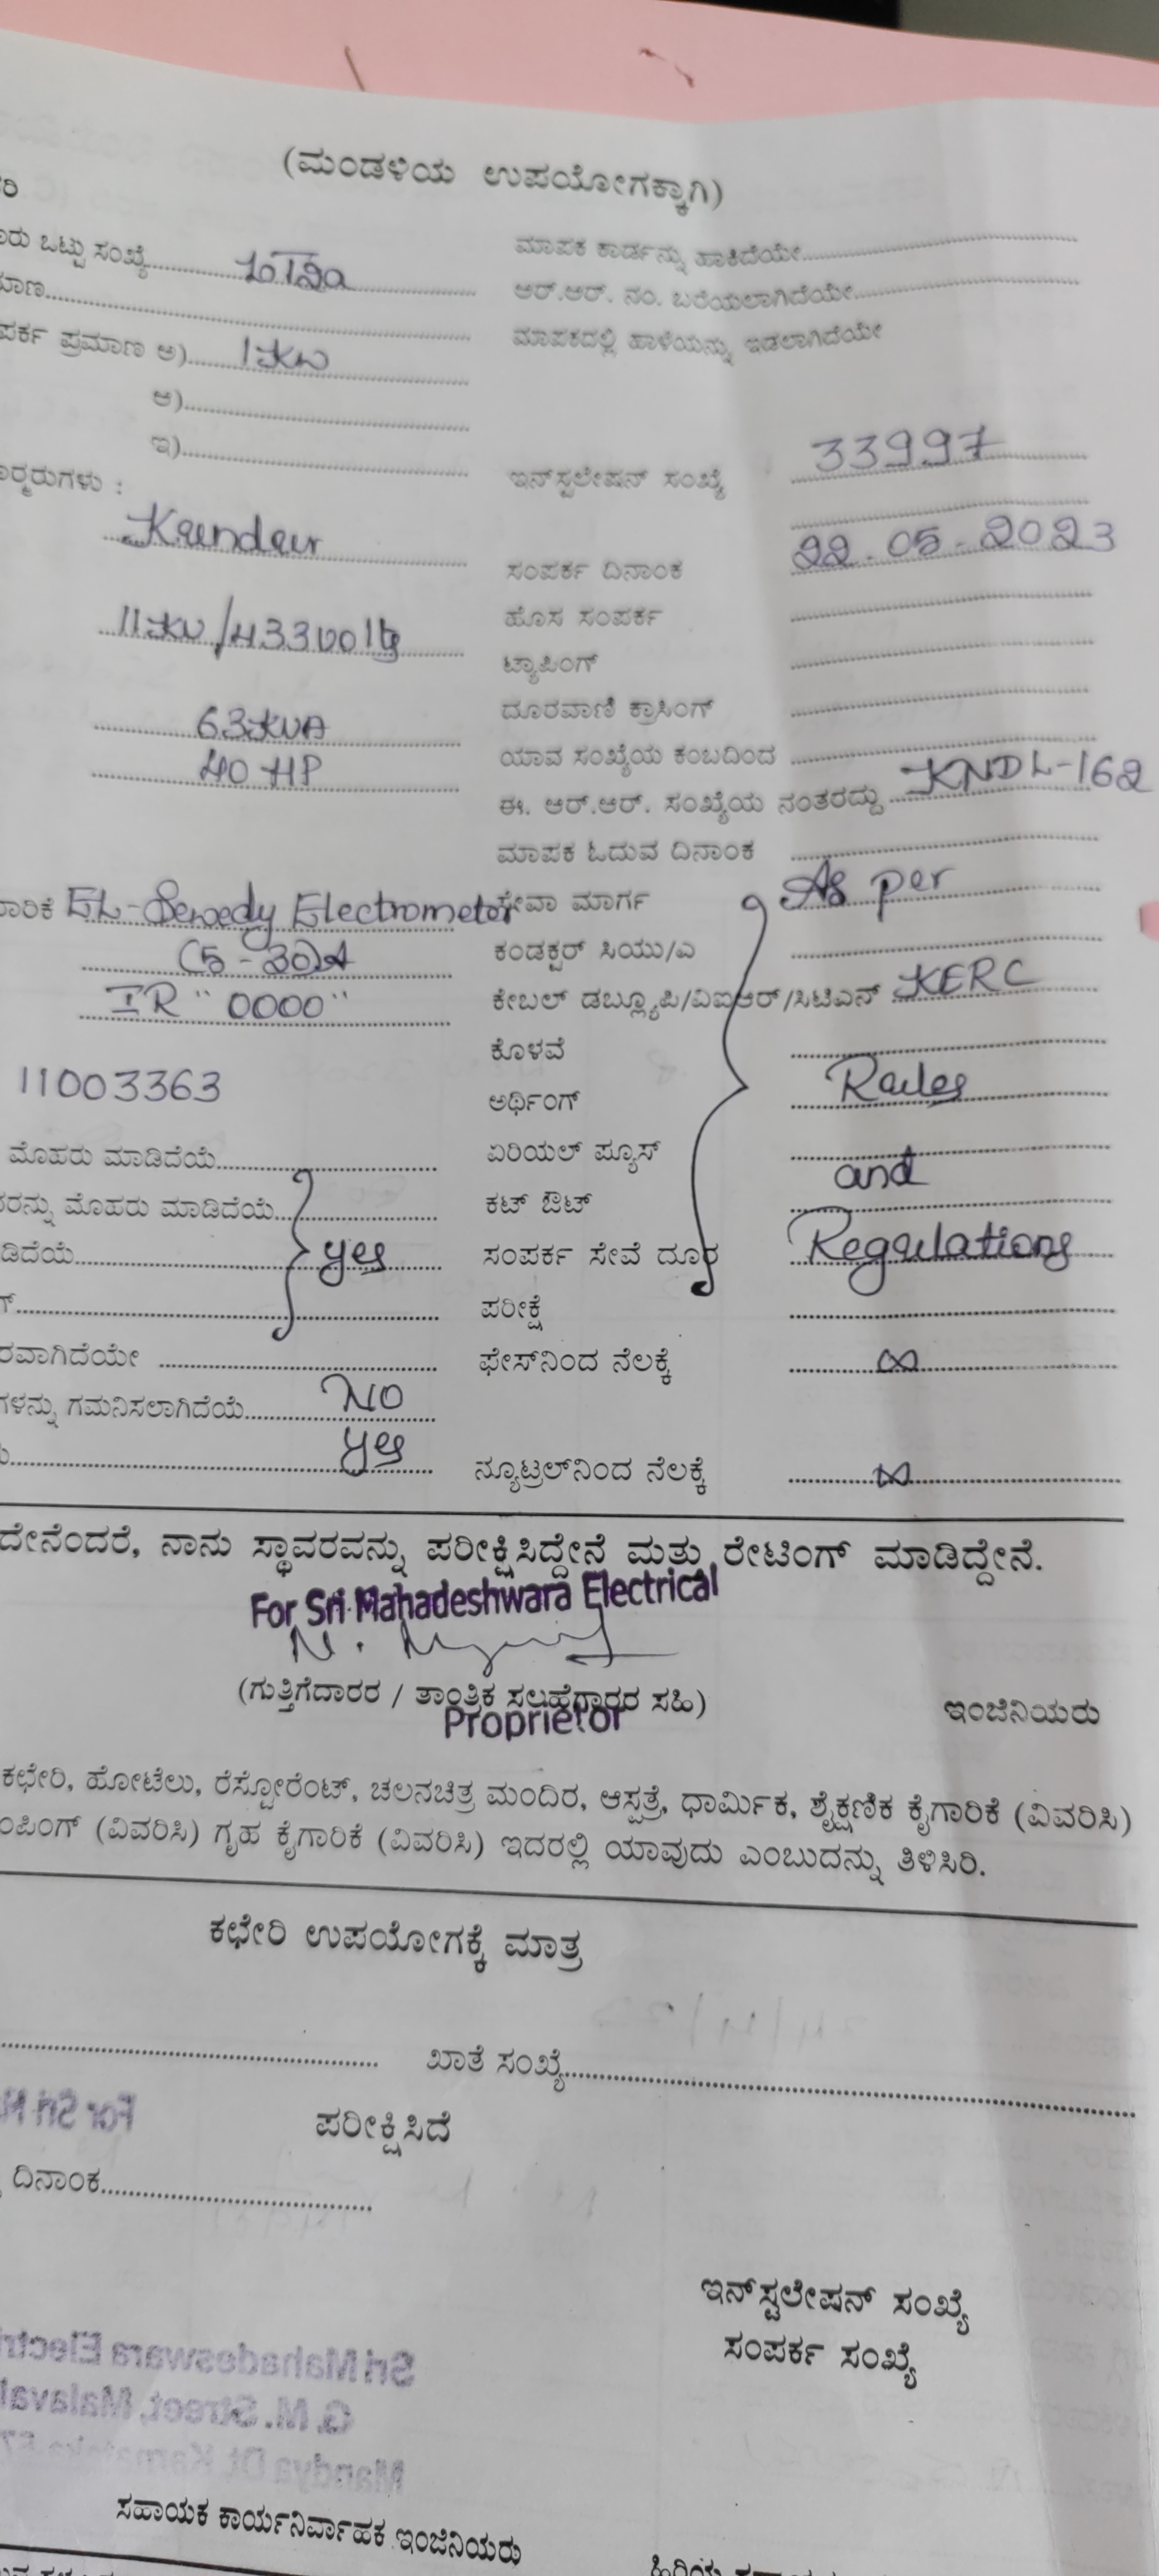 (ಮಂಡಳಿಯ ಉಪಯೋಗಕ್ಕಾಗಿ)
ಒಟ್ಟು ಸಂಖ್ಯೆ
ಮಾಪಕ ಕಾರ್ಡನ್ನು ಹಾಕಿದೆಯೇ
ಆರ್.ಆರ್. ನಂ. ಬರೆಯಲಾಗಿದೆಯೇ
ಪ್ರಮಾಣ ಅ) 1KW
ಮಾಪಕದಲ್ಲಿ ಹಾಳೆಯನ್ನು ಇಡಲಾಗಿದೆಯೇ
ಆ)
ಇ)
ಇನ್‌ಸ್ಟಲೇಷನ್ ಸಂಖ್ಯೆ 33997
Kundur
ಸಂಪರ್ಕ ದಿನಾಂಕ 22.05-2023
ಹೊಸ ಸಂಪರ್ಕ
11KV/433volts
ಟ್ಯಾಪಿಂಗ್
63KVA
ದೂರವಾಣಿ ಕ್ರಾಸಿಂಗ್
40 HP
ಯಾವ ಸಂಖ್ಯೆಯ ಕಂಬದಿಂದ
ಈ. ಆರ್.ಆರ್. ಸಂಖ್ಯೆಯ ನಂತರದ್ದು KNDL-162
ಮಾಪಕ ಓದುವ ದಿನಾಂಕ
EL-Sewedy Electrometer
ಸೇವಾ ಮಾರ್ಗ As per
(5-30)A
ಕಂಡಕ್ಟರ್ ಸಿಯು/ಎ
IR "0000"
ಕೇಬಲ್ ಡಬ್ಲ್ಯೂಪಿ/ವಿಐಆರ್/ಸಿಟಿಎನ್ KERC
ಕೊಳವೆ
11003363
ಅರ್ಥಿಂಗ್ Rules
ಮೊಹರು ಮಾಡಿದೆಯೆ
ಏರಿಯಲ್ ಪ್ಯೂಸ್ and
ಮೊಹರು ಮಾಡಿದೆಯೆ
ಕಟ್ ಔಟ್
yes
ಸಂಪರ್ಕ ಸೇವೆ ದೂರ Regulations
ಪರೀಕ್ಷೆ
ಫೇಸ್‌ನಿಂದ ನೆಲಕ್ಕೆ ∞
ಗಮನಿಸಲಾಗಿದೆಯೆ NO
yes
ನ್ಯೂಟ್ರಲ್‌ನಿಂದ ನೆಲಕ್ಕೆ ∞
ನಾನು ಸ್ಥಾವರವನ್ನು ಪರೀಕ್ಷಿಸಿದ್ದೇನೆ ಮತ್ತು ರೇಟಿಂಗ್ ಮಾಡಿದ್ದೇನೆ.
For Sri Mahadeshwara Electrical
(ಗುತ್ತಿಗೆದಾರರ / ತಾಂತ್ರಿಕ ಸಲಹೆಗಾರರ ಸಹಿ)
Proprietor
ಇಂಜಿನಿಯರು
ಕಛೇರಿ, ಹೋಟೆಲು, ರೆಸ್ಟೋರೆಂಟ್, ಚಲನಚಿತ್ರ ಮಂದಿರ, ಆಸ್ಪತ್ರೆ, ಧಾರ್ಮಿಕ, ಶೈಕ್ಷಣಿಕ ಕೈಗಾರಿಕೆ (ವಿವರಿಸಿ)
(ವಿವರಿಸಿ) ಗೃಹ ಕೈಗಾರಿಕೆ (ವಿವರಿಸಿ) ಇದರಲ್ಲಿ ಯಾವುದು ಎಂಬುದನ್ನು ತಿಳಿಸಿರಿ.
ಕಛೇರಿ ಉಪಯೋಗಕ್ಕೆ ಮಾತ್ರ
ಖಾತೆ ಸಂಖ್ಯೆ
ಪರೀಕ್ಷಿಸಿದೆ
ದಿನಾಂಕ
ಇನ್‌ಸ್ಟಲೇಷನ್ ಸಂಖ್ಯೆ
ಸಂಪರ್ಕ ಸಂಖ್ಯೆ
ಸಹಾಯಕ ಕಾರ್ಯನಿರ್ವಾಹಕ ಇಂಜಿನಿಯರು